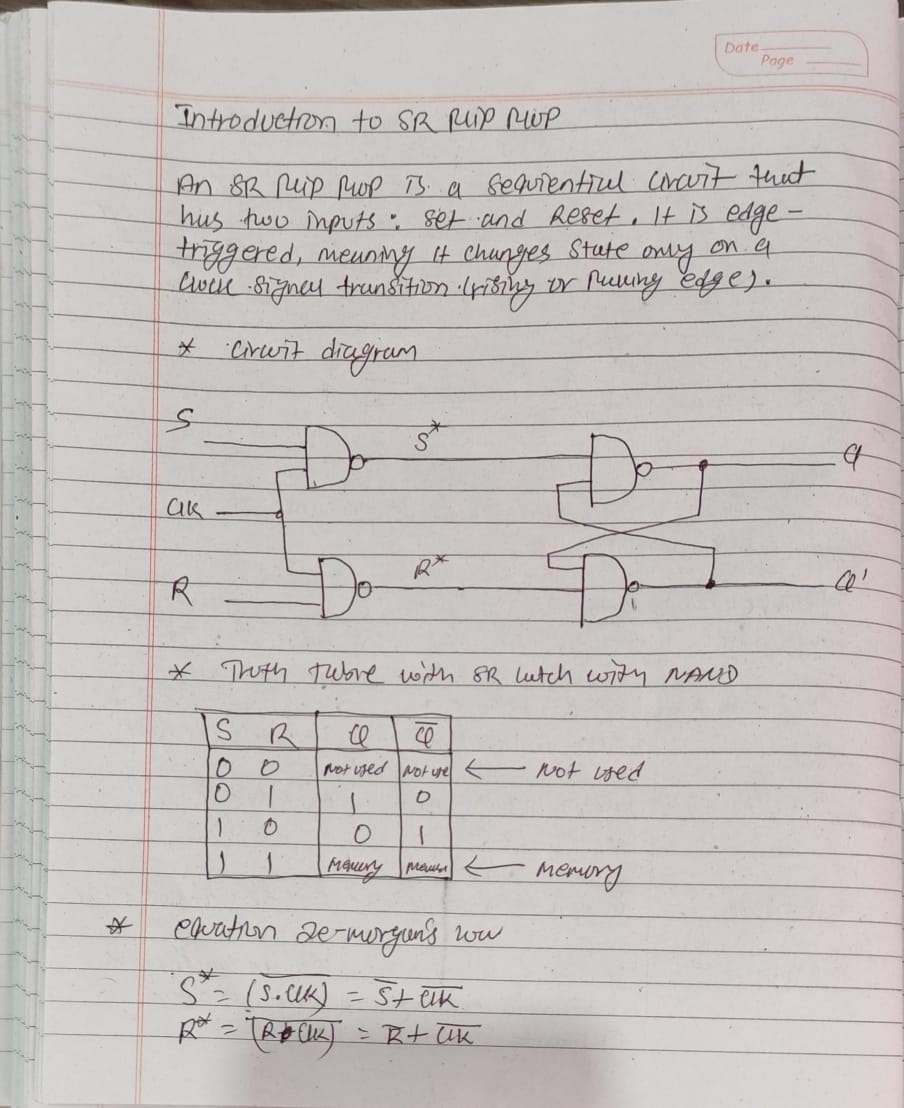 Date
Page
Introduction to SR flip flop
An SR flip flop is a sequiential circuit that
has two inputs : set and Reset. It is edge-
triggered, meaning it changes state only on a
clock signal transition (rising or falling edge).
* Circuit diagram
S
S*
Q
Clk
R
R*
Q'
* Truth table with SR latch with NAND
S R Q Q̅
0 0 Not used Not use ← Not used
0 1 1 0
1 0 0 1
1 1 Memory Memory ← Memory
* equation De-morgan's law
S* = \overline{(S.Clk)} = \overline{S} + \overline{Clk}
R* = \overline{(R.Clk)} = \overline{R} + \overline{Clk}